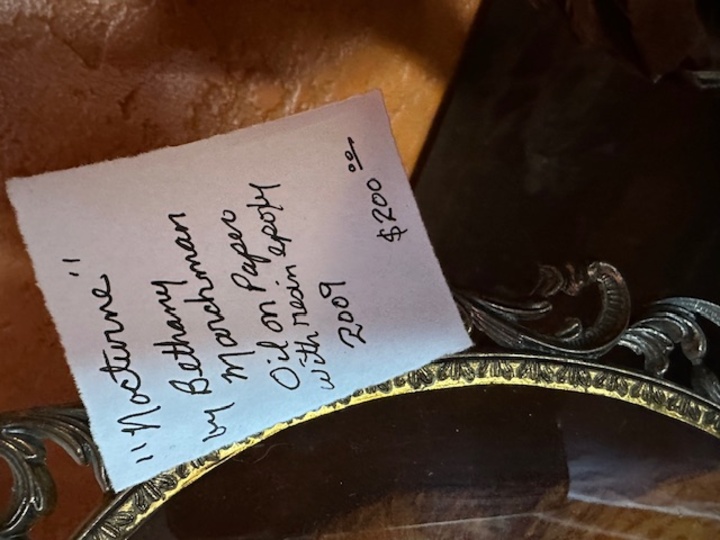 "Nocturne"
by Bethany
Marchman
Oil on Paper
with resin epoxy
2009 $200.00